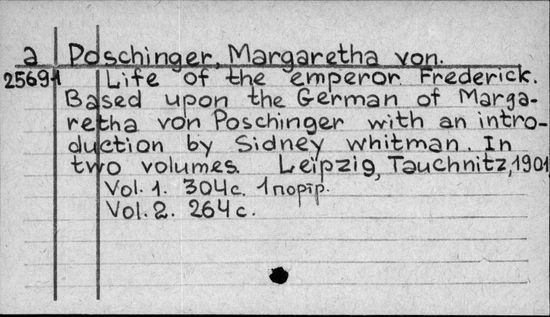 a Poschinger, Margaretha von.
25691 Life of the emperor Frederick.
Based upon the German of Marga-
retha von Poschinger with an intro-
duction by Sidney whitman. In
two volumes. Leipzig, Tauchnitz, 1901
Vol. 1. 304 с. 1 портр.
Vol. 2. 264 с.